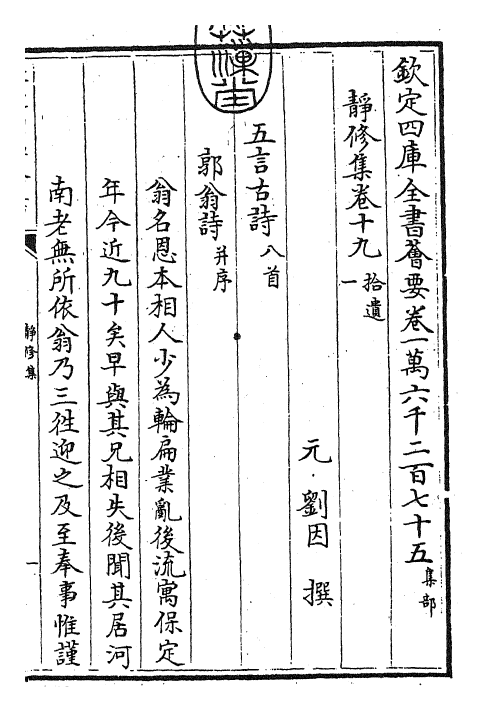 欽定四庫全書薈要卷一萬六千二百七十五集部
靜修集卷十九 拾遺一
元 劉因 撰
五言古詩 八首
郭翁詩 并序
翁名恩本相人少為輪扁業亂後流寓保定
年今近九十矣早與其兄相失後聞其居河
南老無所依翁乃三往迎之及至奉事惟謹
靜修集
一